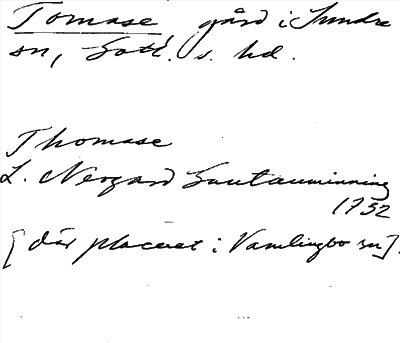 Tomase gård i Sundre
sn, Gotl. s. hd.
Thomase
L. Neogard Gautauminning
1732
[där placerat i Vamlingbo sn].